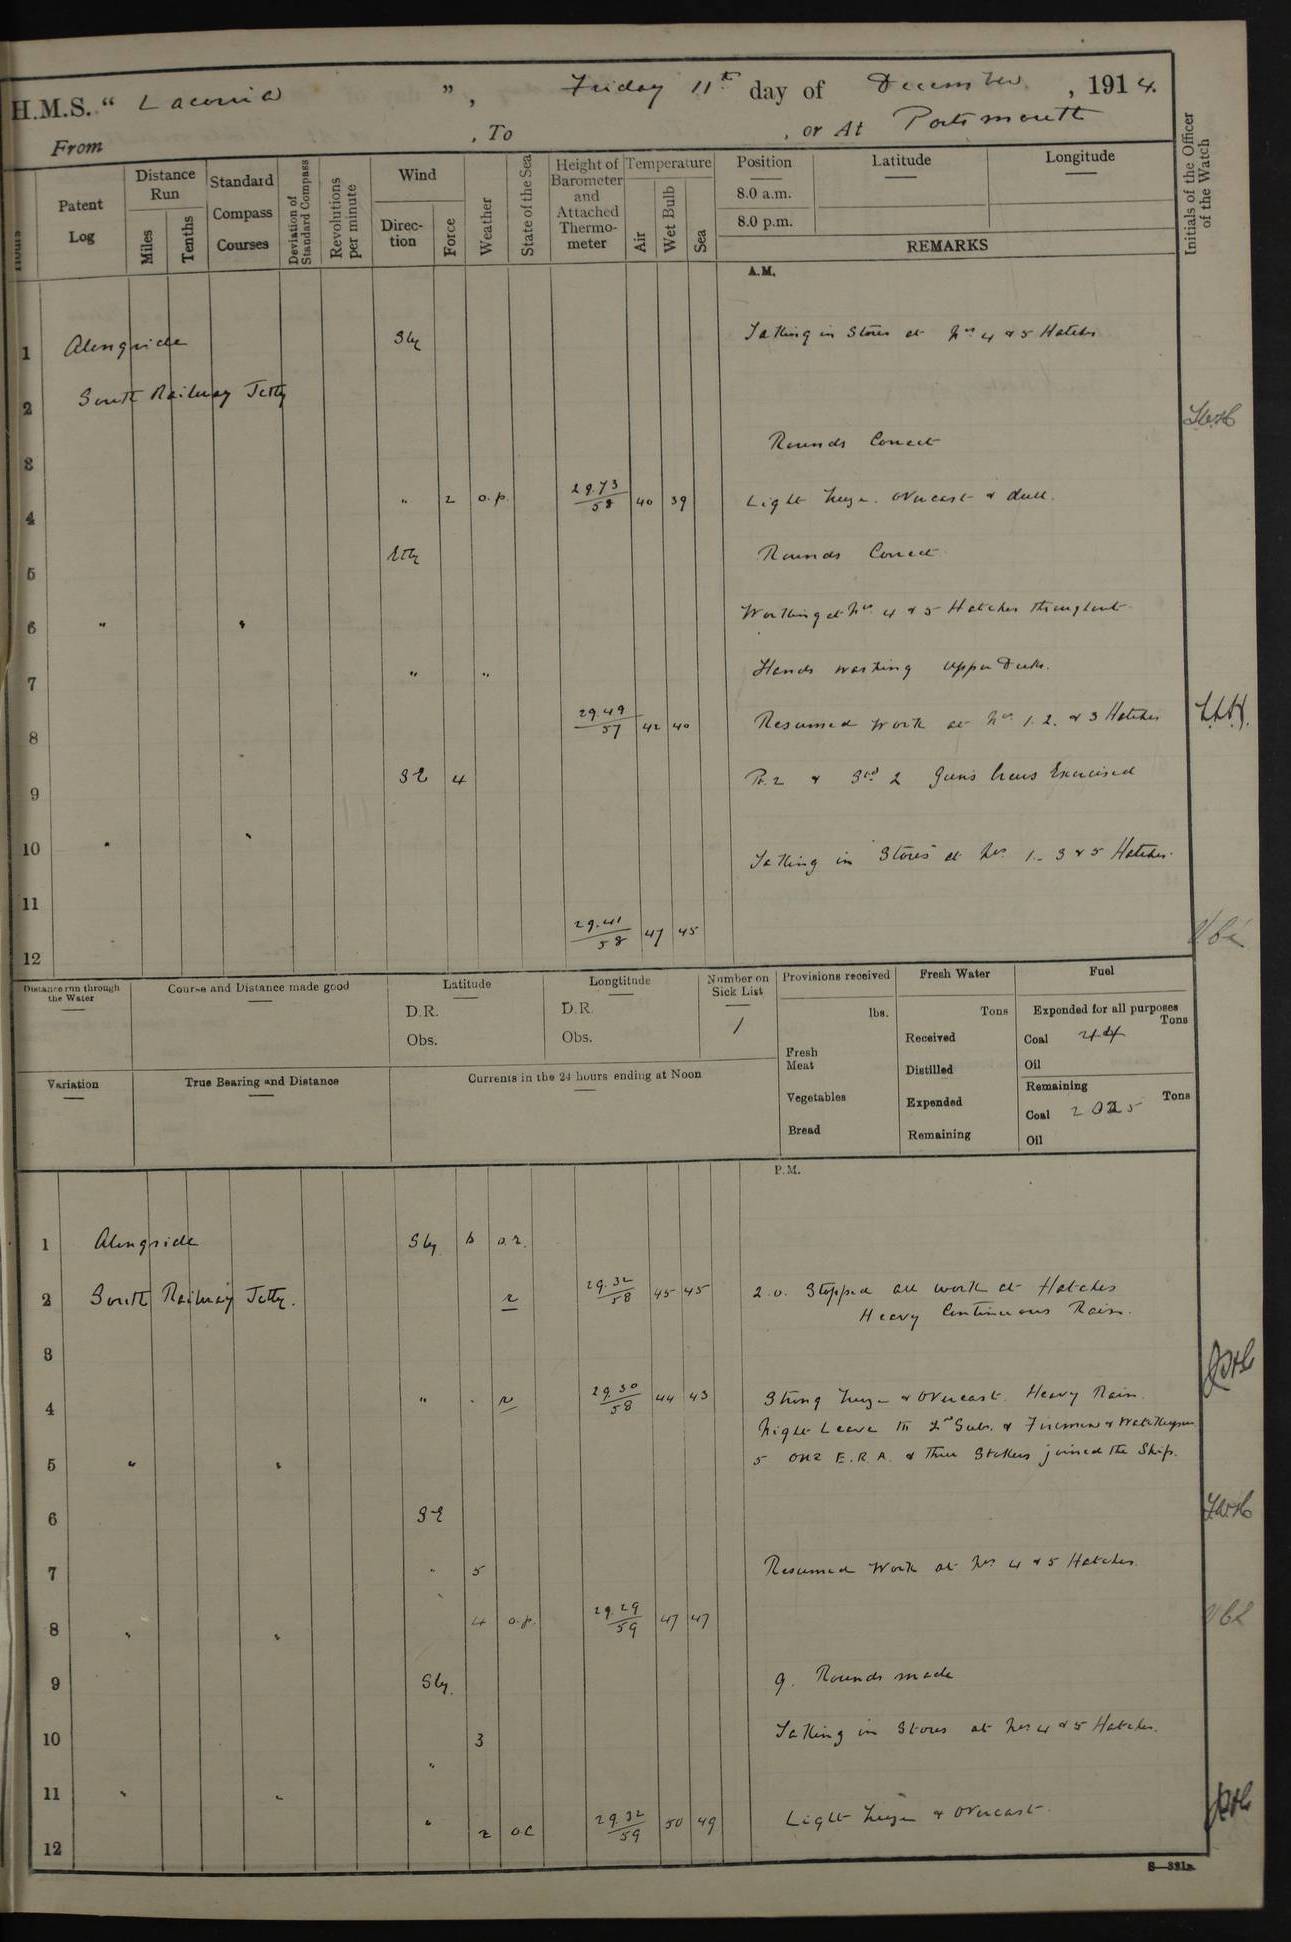 H.M.S. “ Laconia ”, Friday 11th day of December, 1914.
From , To , or At Portsmouth
Hours
Patent Log
Distance Run
Miles
Tenths
Standard Compass Courses
Deviation of Standard Compass
Revolutions per minute
Wind
Direction
Force
Weather
State of the Sea
Height of Barometer and Attached Thermometer
Temperature
Air
Wet Bulb
Sea
Position
8.0 a.m.
8.0 p.m.
Latitude
Longitude
REMARKS
Initials of the Officer of the Watch
A.M.
1 Alongside Sly Taking in Stores at Nos 4 & 5 Hatches
2 South Railway Jetty
3 Rounds Correct
4 " 2 o.p. 29.73/58 40 39 Light breeze. Overcast & dull.
5 Ely Rounds Correct
6 " " Working at Nos 4 & 5 Hatches throughout
7 " " Hands washing Upper Decks.
8 29.49/57 42 40 Resumed work at Nos 1. 2. & 3 Hatches
9 SE 4 Pt. 2 & Std 2 Guns Crews Exercised
10 " " Taking in Stores at Nos 1 - 3 & 5 Hatches.
11
12 29.41/58 47 45
Distance run through the Water
Course and Distance made good
Latitude
D.R.
Obs.
Longtitude
D.R.
Obs.
Number on Sick List
1
Provisions received
lbs.
Fresh Meat
Vegetables
Bread
Fresh Water
Tons
Received
Distilled
Expended
Remaining
Fuel
Expended for all purposes
Tons
Coal 44
Oil
Remaining
Tons
Coal 2025
Oil
Variation
True Bearing and Distance
Currents in the 24 hours ending at Noon
P.M.
1 Alongside Sly 6 o.r.
2 South Railway Jetty. r 29.32/58 45 45 2.0. Stopped all work at Hatches
Heavy Continuous Rain.
3
4 " " r 29.30/58 44 43 Strong breeze & Overcast. Heavy Rain.
Night Leave to
5 " " 5 One E.R.A. & Three Stokers joined the Ship.
6 SE
7 " 5 Resumed Work at Nos 4 & 5 Hatches.
8 " " " 4 o.p. 29.29/59 47 47
9 Sly. 9. Rounds made
10 " 3 Taking in Stores at Nos 4 & 5 Hatches.
11 " "
12 " 2 o.c 29.32/59 50 49 Light breeze & Overcast.
S—321a.